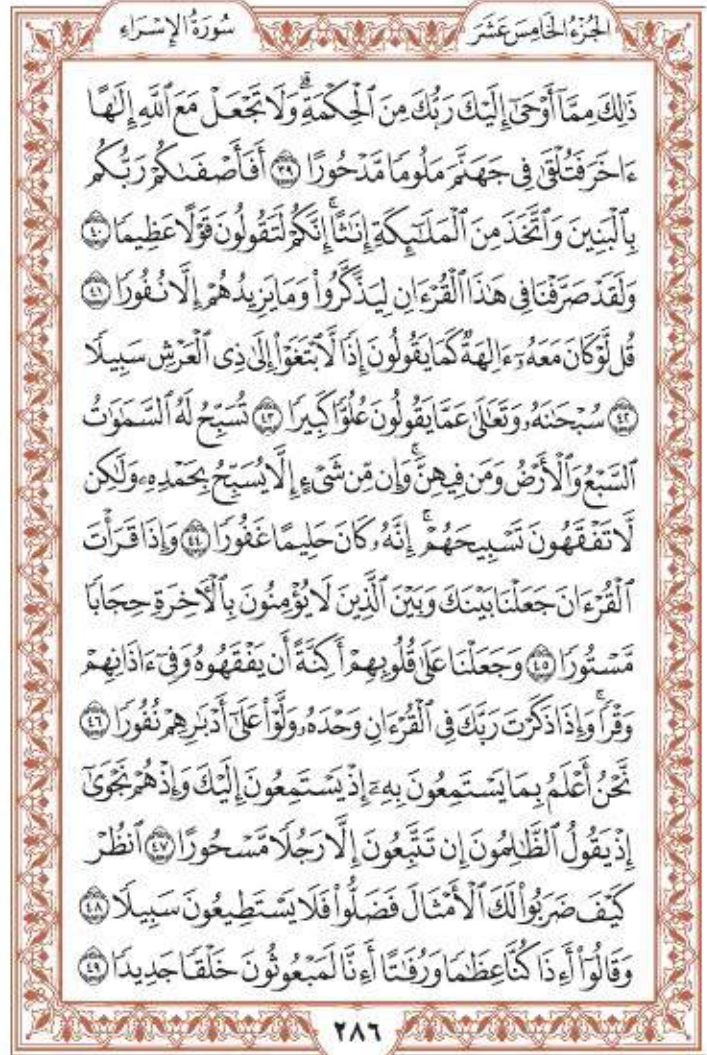 الجزء الخامس عشر
سورة الإسراء
ذَٰلِكَ مِمَّآ أَوْحَىٰٓ إِلَيْكَ رَبُّكَ مِنَ ٱلْحِكْمَةِۗ وَلَا تَجْعَلْ مَعَ ٱللَّهِ إِلَٰهًا
ءَاخَرَ فَتُلْقَىٰ فِى جَهَنَّمَ مَلُومًا مَّدْحُورًا ٣٩ أَفَأَصْفَىٰكُمْ رَبُّكُم
بِٱلْبَنِينَ وَٱتَّخَذَ مِنَ ٱلْمَلَٰٓئِكَةِ إِنَٰثًاۚ إِنَّكُمْ لَتَقُولُونَ قَوْلًا عَظِيمًا ٤٠
وَلَقَدْ صَرَّفْنَا فِى هَٰذَا ٱلْقُرْءَانِ لِيَذَّكَّرُوا۟ وَمَا يَزِيدُهُمْ إِلَّا نُفُورًا ٤١
قُل لَّوْ كَانَ مَعَهُۥٓ ءَالِهَةٌ كَمَا يَقُولُونَ إِذًا لَّٱبْتَغَوْا۟ إِلَىٰ ذِى ٱلْعَرْشِ سَبِيلًا
٤٢ سُبْحَٰنَهُۥ وَتَعَٰلَىٰ عَمَّا يَقُولُونَ عُلُوًّا كَبِيرًا ٤٣ تُسَبِّحُ لَهُ ٱلسَّمَٰوَٰتُ
ٱلسَّبْعُ وَٱلْأَرْضُ وَمَن فِيهِنَّۚ وَإِن مِّن شَىْءٍ إِلَّا يُسَبِّحُ بِحَمْدِهِۦ وَلَٰكِن
لَّا تَفْقَهُونَ تَسْبِيحَهُمْۗ إِنَّهُۥ كَانَ حَلِيمًا غَفُورًا ٤٤ وَإِذَا قَرَأْتَ
ٱلْقُرْءَانَ جَعَلْنَا بَيْنَكَ وَبَيْنَ ٱلَّذِينَ لَا يُؤْمِنُونَ بِٱلْءَاخِرَةِ حِجَابًا
مَّسْتُورًا ٤٥ وَجَعَلْنَا عَلَىٰ قُلُوبِهِمْ أَكِنَّةً أَن يَفْقَهُوهُ وَفِىٓ ءَاذَانِهِمْ
وَقْرًاۚ وَإِذَا ذَكَرْتَ رَبَّكَ فِى ٱلْقُرْءَانِ وَحْدَهُۥ وَلَّوْا۟ عَلَىٰٓ أَدْبَٰرِهِمْ نُفُورًا ٤٦
نَّحْنُ أَعْلَمُ بِمَا يَسْتَمِعُونَ بِهِۦٓ إِذْ يَسْتَمِعُونَ إِلَيْكَ وَإِذْ هُمْ نَجْوَىٰٓ
إِذْ يَقُولُ ٱلظَّٰلِمُونَ إِن تَتَّبِعُونَ إِلَّا رَجُلًا مَّسْحُورًا ٤٧ ٱنظُرْ
كَيْفَ ضَرَبُوا۟ لَكَ ٱلْأَمْثَالَ فَضَلُّوا۟ فَلَا يَسْتَطِيعُونَ سَبِيلًا ٤٨
وَقَالُوٓا۟ أَءِذَا كُنَّا عِظَٰمًا وَرُفَٰتًا أَءِنَّا لَمَبْعُوثُونَ خَلْقًا جَدِيدًا ٤٩
٢٨٦